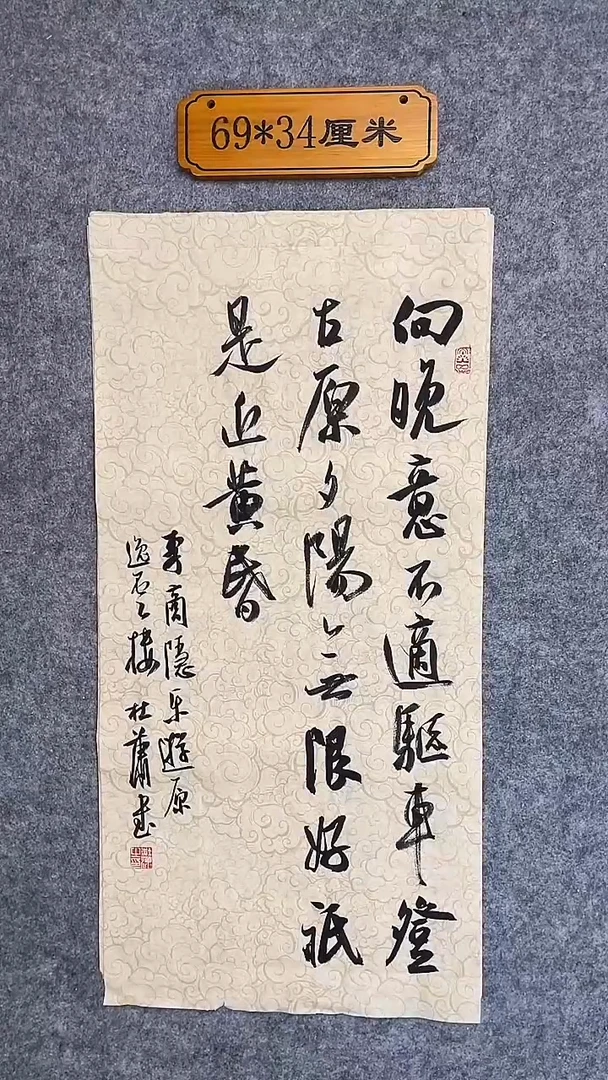 69*34厘米
向晚意不適驅車登
古原夕陽無限好祇
是近黄昏
李商隱乐遊原
逸石之楼 杜蕭书